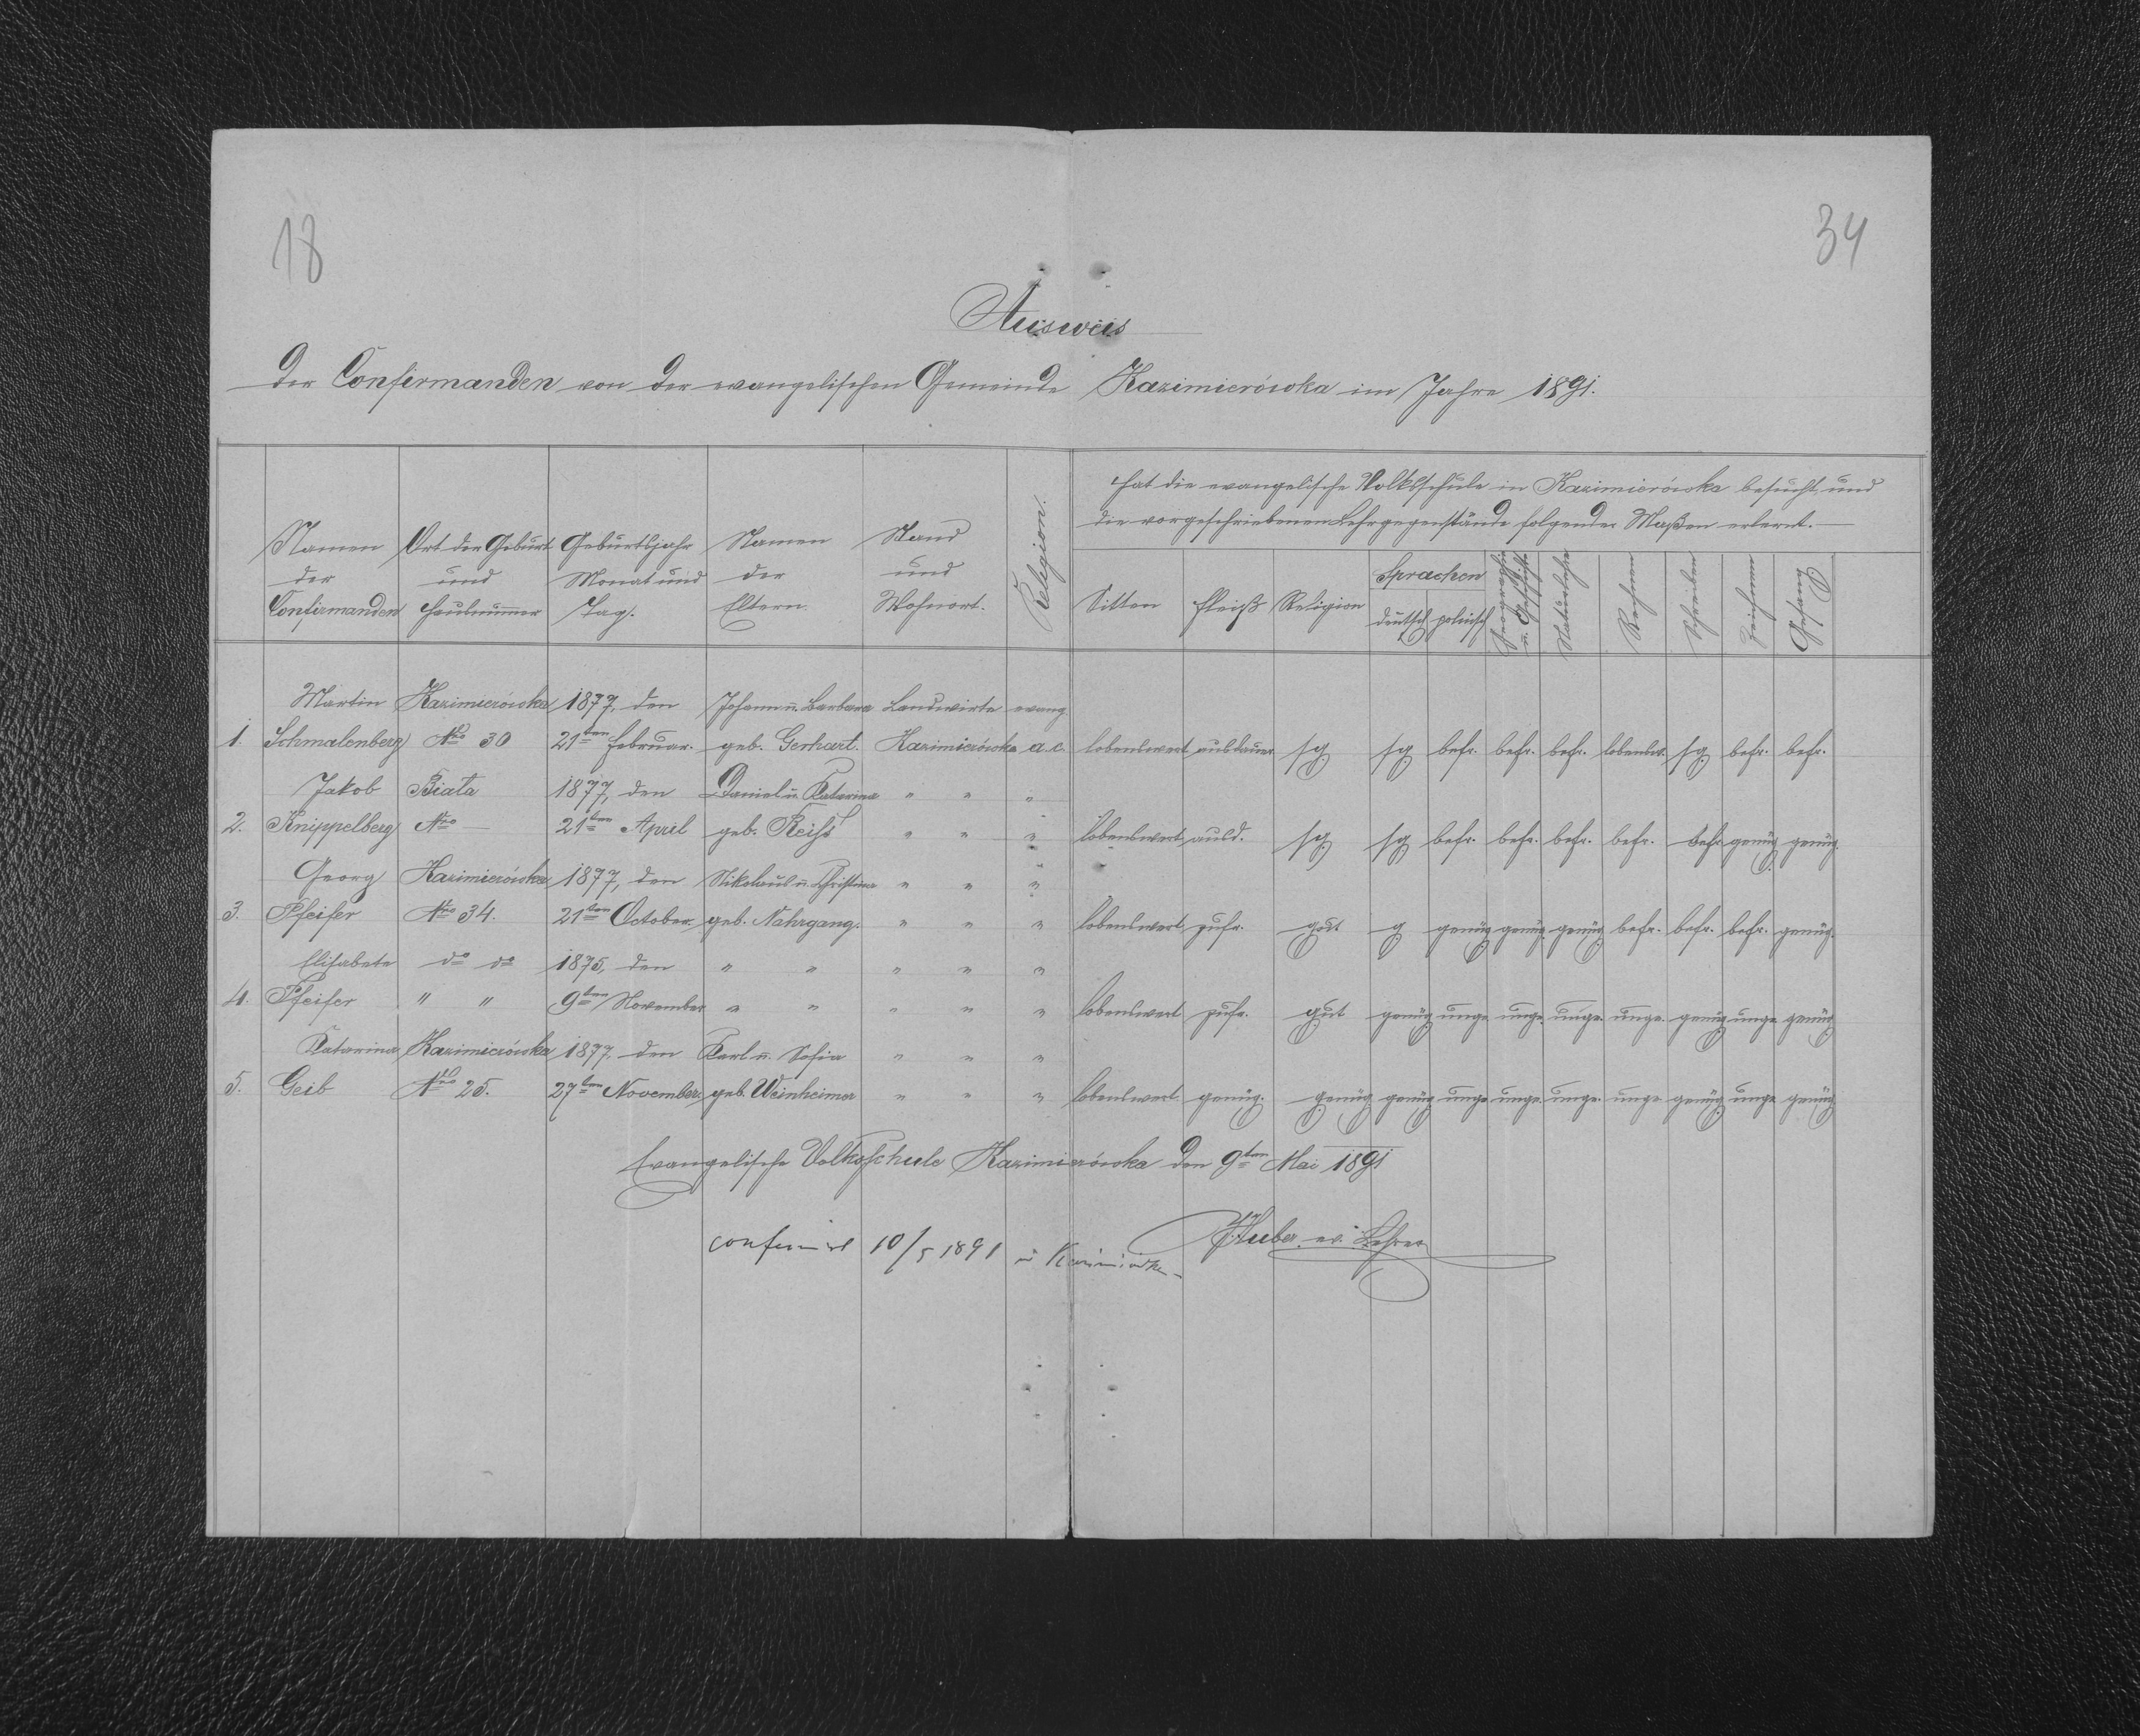 18
34
Ausweis
der Confirmanden von der evangelischen Gemeinde Kazimierówka im Jahre 1891.
Namen der Confirmanden
Ort der Geburt und Hausnum̄er
Geburtsjahr Monat und Tag.
Namen der Eltern.
Stand und Wohnort.
Religion.
Hat die evangelische Volksschule in Kazimierówka besucht und
die vorgeschriebenen Lehrgegenstände folgender Maßen erlernt.—
Sitten Fleiß Religion
Sprachen
deutsch polnisch
Geographie u. Geschichte
Naturlehre
Rechnen
Schreiben
Zeichnen
Gesang
Martin Kazimierówka 1877, den Johann u. Barbara Landwirte evang
1. Schmalenberg Nro 30 21ten Februar. geb. Gerhart. Kazimierówka a.c. lobenswert ausdauer. sg. sg befr. befr. befr. lobensw. sg. befr. befr.
Jakob Biała 1877, den Daniel u. Katarina " " "
2. Knippelberg Nro — 21ten April geb. Reiss " " " lobenswert ausd. sg. sg befr. befr. befr. befr. befr. genüg. genüg.
Georg Kazimierówka 1877, den Nikolaus u. Christina " " "
3. Pfeifer Nro 34. 21ten October. geb. Nahrgang. " " " lobenswert zufr. gut g genüg genüg. genüg. befr. befr. befr. genüg.
Elisabete do do 1875, den " " " " "
4. Pfeifer " " 9ten November " " " " " lobenswert zufr. gut genüg unge. unge. unge. unge. genüg unge genüg
Katarina Kazimierówka 1877. den Karl u. Sofia " " "
5. Geib Nro 25. 27ten November. geb. Weinheimer " " " lobenswert genüg. genüg genüg unge unge. unge. unge genüg unge genüg
Evangelische Volksschule Kazimierówka den 9ten Mai 1891
Huber ev. Lehrer
confirmirt 10/5 1891 in